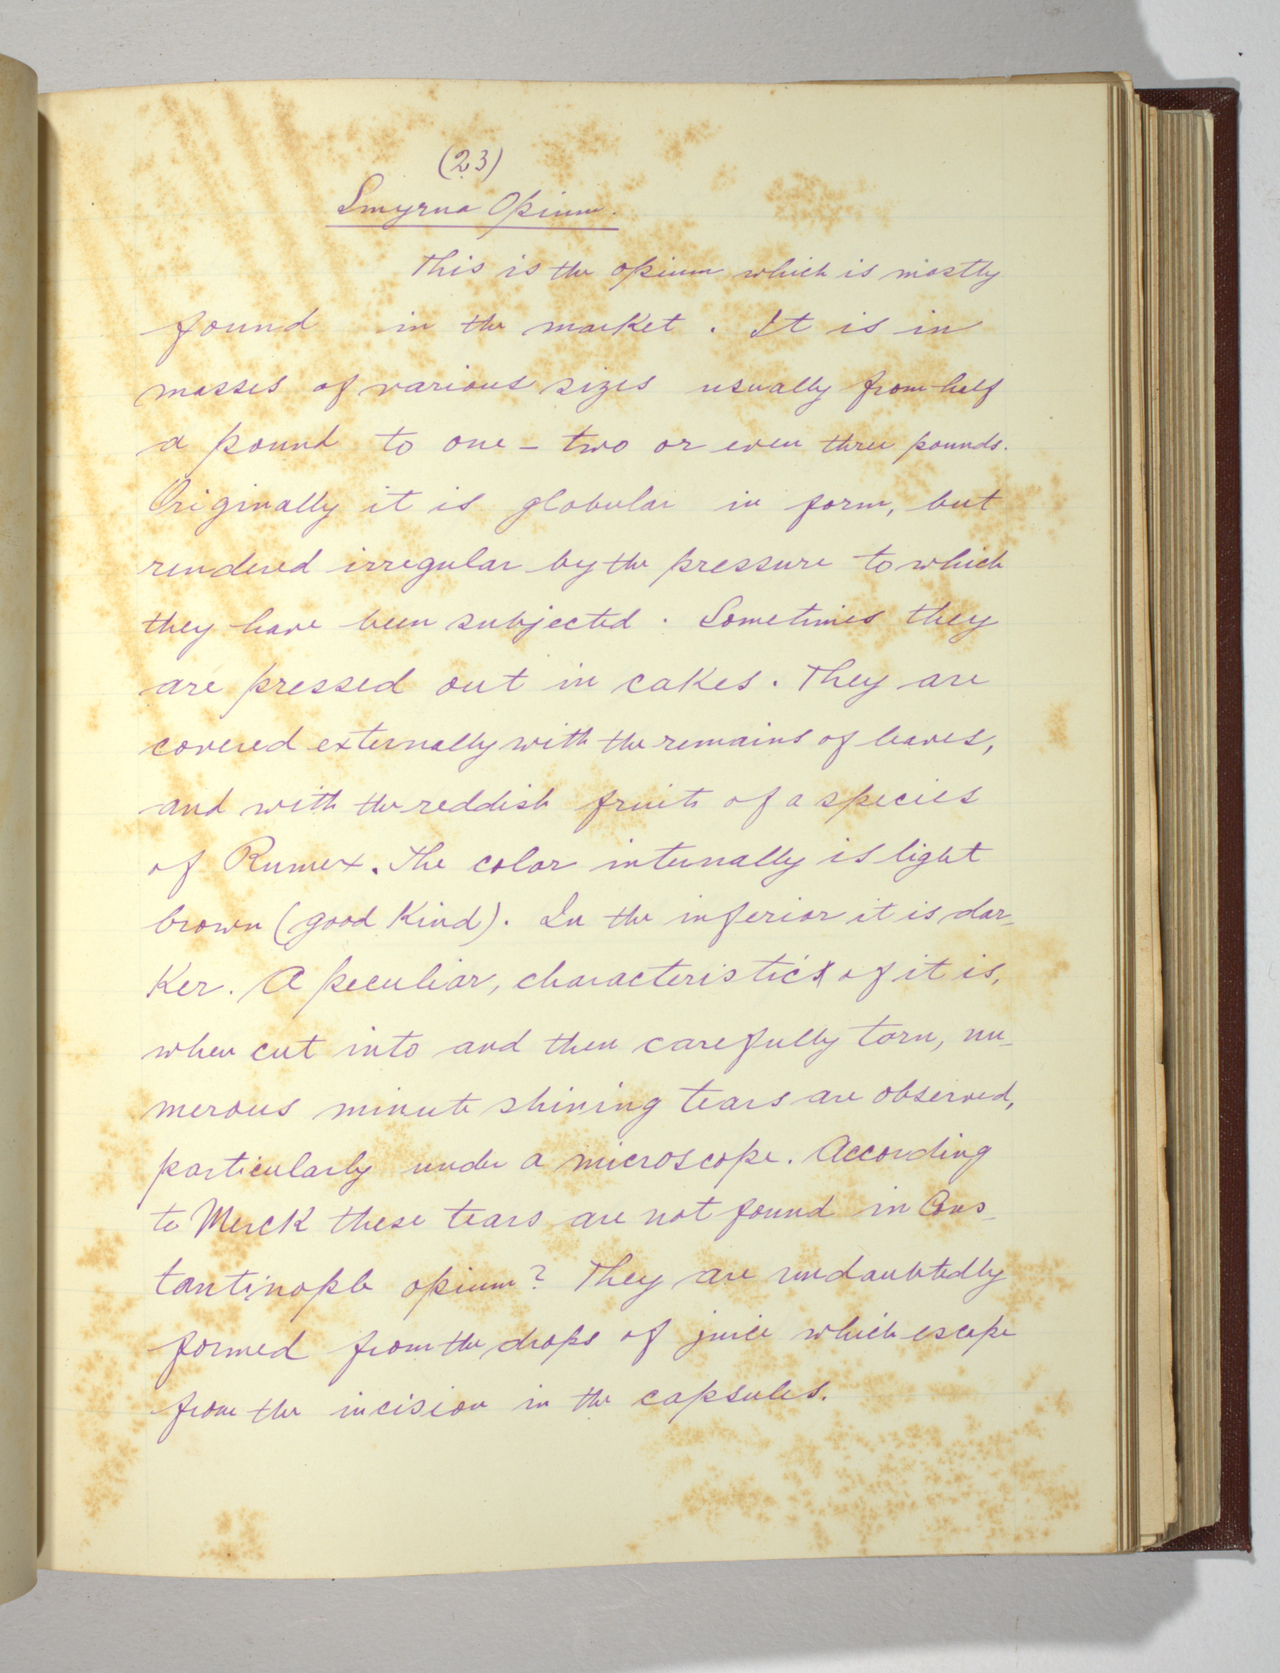 (23)
Smyrna Opium.
This is the opium which is mostly
found in the market. It is in
masses of various sizes usually from half
a pound to one - two or even three pounds.
Originally it is globular in form, but
rendered irregular by the pressure to which
they have been subjected. Sometimes they
are pressed out in cakes. They are
covered externally with the remains of leaves,
and with the reddish fruits of a species
of Rumex. The color internally is light
brown (good Kind). In the inferior it is dar-
Ker. A peculiar, characteristic of it is,
when cut into and then carefully torn, nu-
merous minute shining tears are observed,
particularly under a microscope. According
to Merck these tears are not found in Cons-
tantinople opium? They are undoubtedly
formed from the drops of juice which escape
from the incision in the capsules.